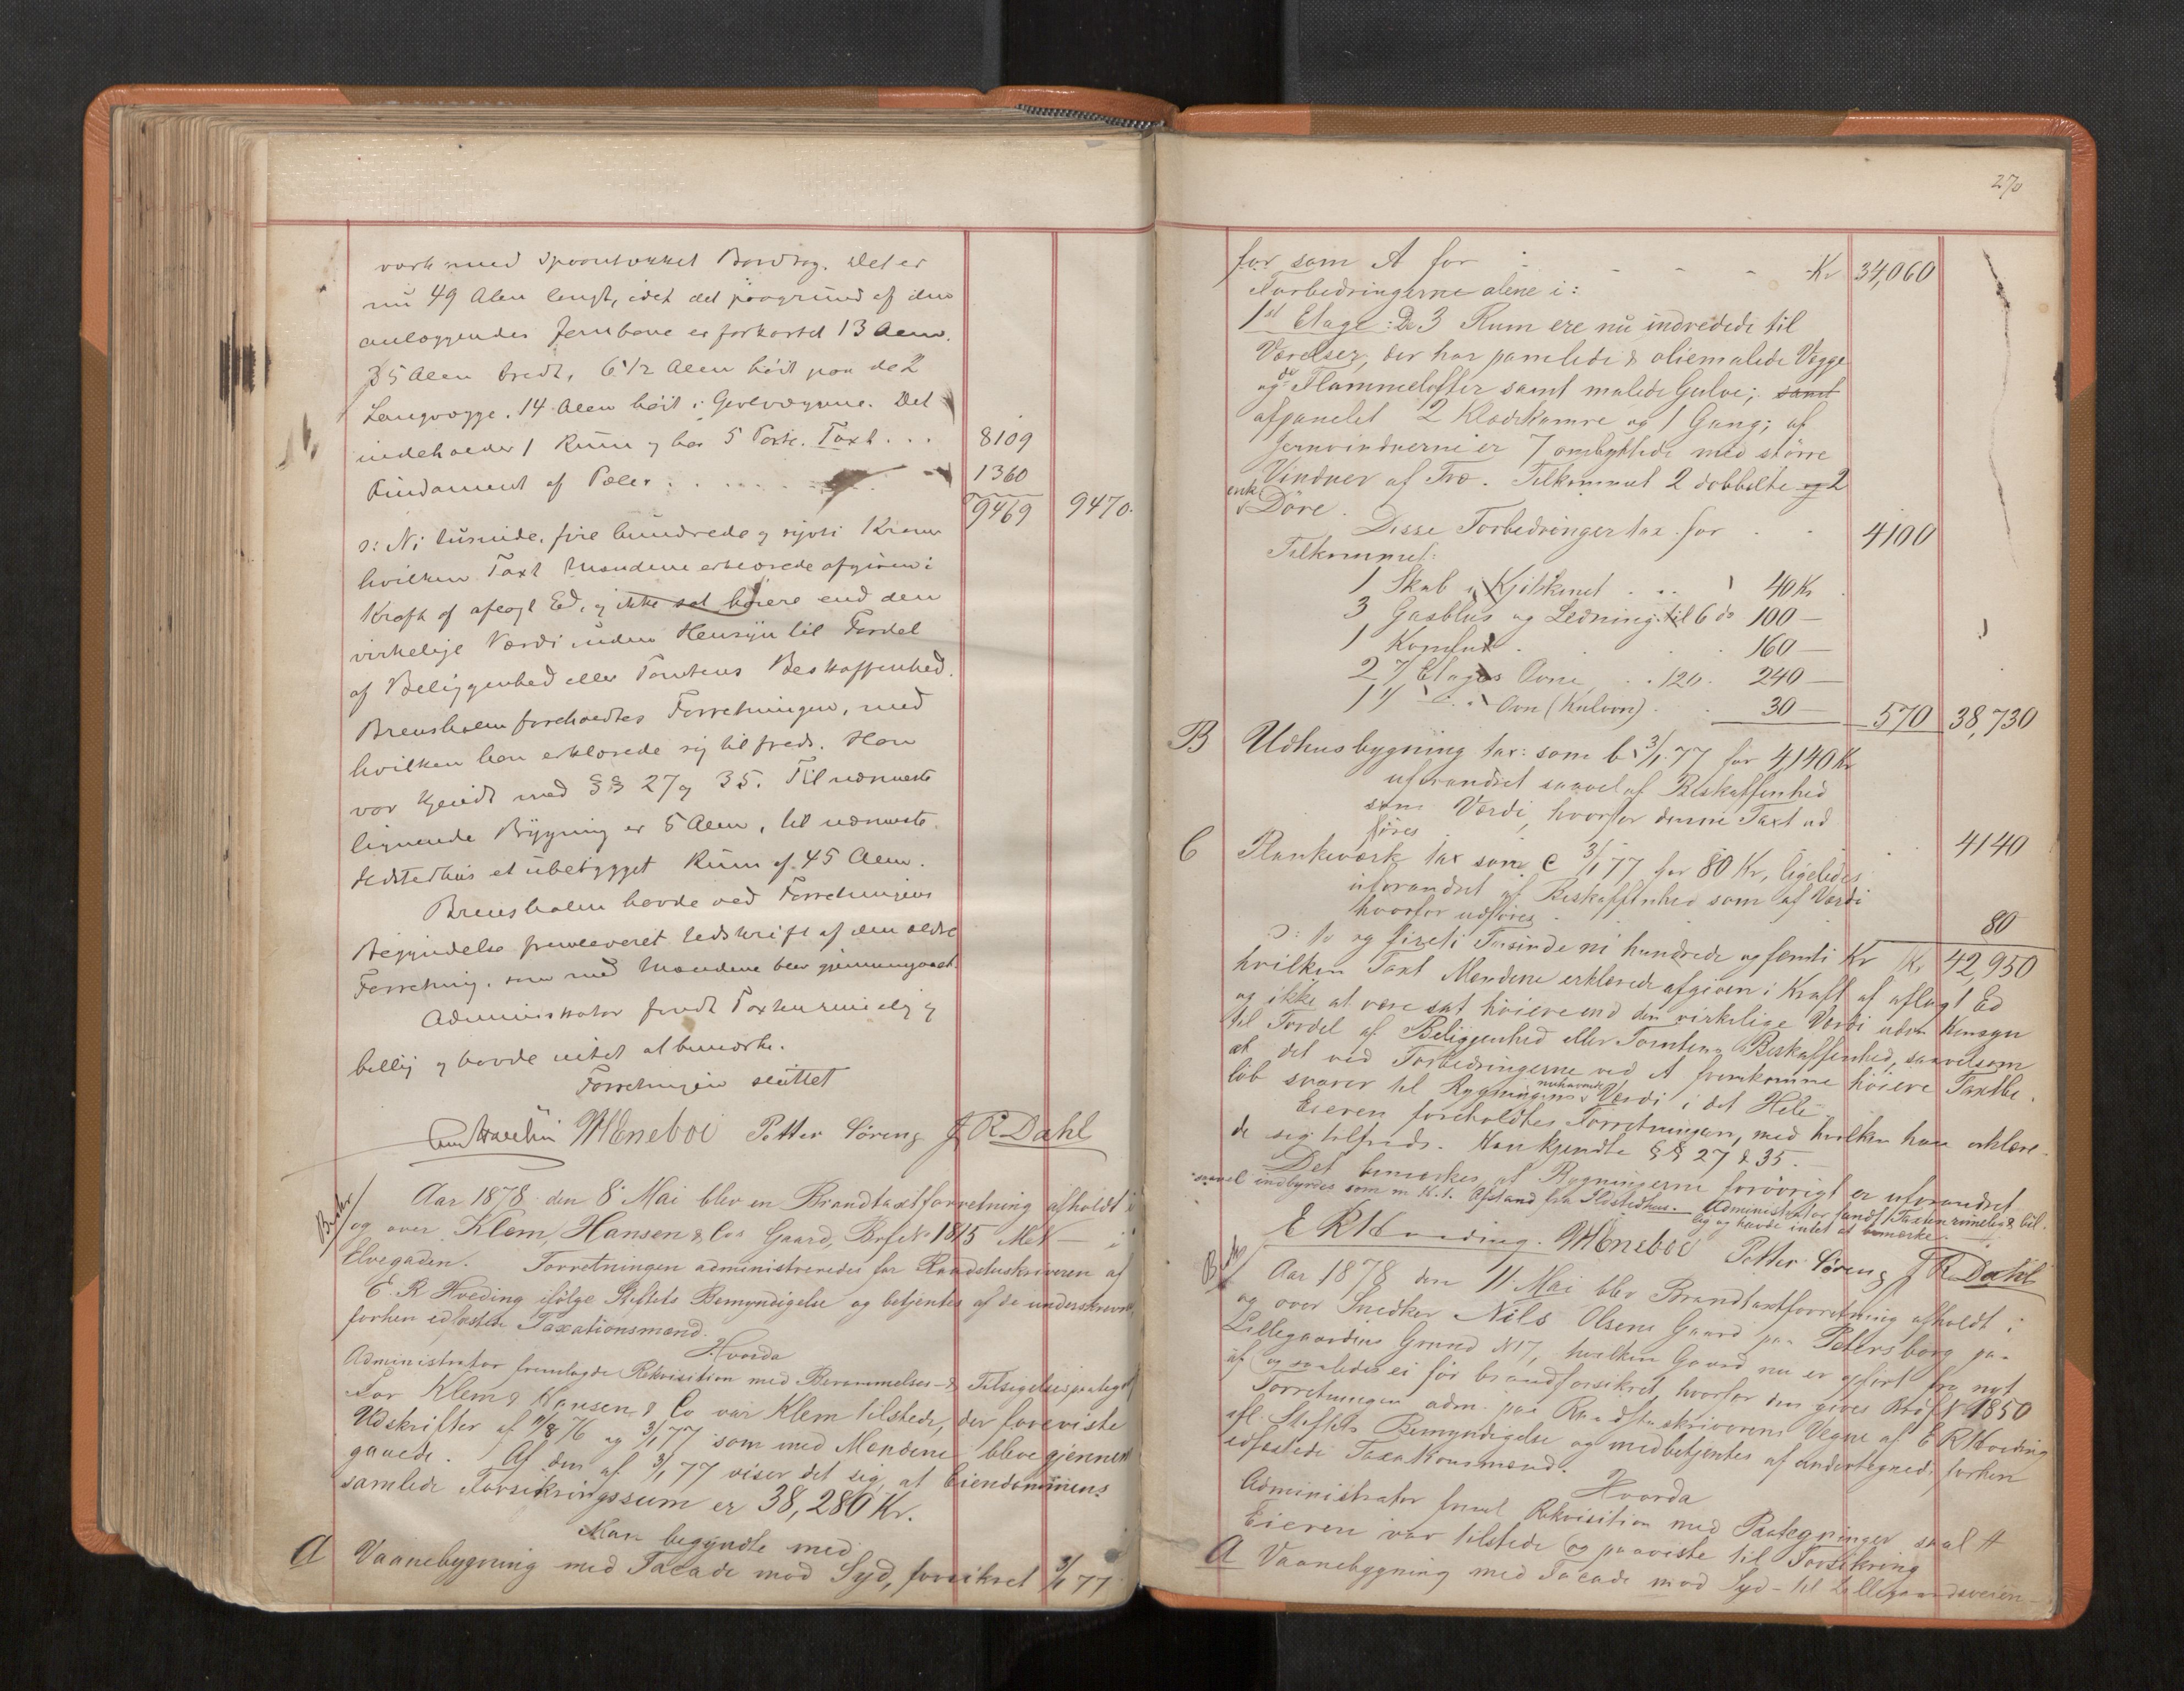 værk med Spoontækket Bordtag. Det er
nu 49 Alen langt, idet det paagrund af den
anlæggendes Jernbane er forkortet 13 Alen.
35 Alen bredt, 6 1/2 Alen høit paa de 2
Langvægge. 14 Alen høit i Gevlvæggene. Det
indeholder 1 Rum og har 5 Porte. Taxt . . . 8109
Fundament af Pæler . . . 1360
9469 9470.
ɔ: Ni tusinde, fire hundrede og sytti Kroner
hvilken Taxt Mændene erklærede afgiven i
Kraft af aflagt Ed, og ikke sat høiere end den
virkelige Værdi uden Hensyn til Fordel
af Beliggenhed eller Tomtens Beskaffenhed.
Brensholm foreholdtes Forretningen, med
hvilken han erklærede sig tilfreds. Han
var kjendt med §§ 27 og 35. Til nærmeste
lignende Bygning er 5 Alen, til nærmeste
Ildstedhus et ubebygget Rum af 45 Alen.
Brensholm havde ved Forretningens
Begyndelse fremleveret Udskrift af den ældre
Forretning, som med Mændene blev gjennemgaaet.
Administrator fandt Taxten rimelig og
billig og havde intet at bemærke.
Forretningen sluttet
MEneboe Petter Søreng J R Dahl
Aar 1878 den 8de Mai blev en Brandtaxtforretning afholdt i
og over Klem, Hansen & Cos Gaard, Brf No 1815 MN — i
Elvegaden. Forretningen administreredes for Raadstuskriveren af
E. R Hveding ifølge Stiftets Bemyndigelse og betjentes af de underskrevne
forhen edfæstede Taxationsmænd.
Hvorda
Administrator fremlagde Rekvisition med Berammelses- & Tilsigelsespaategn
For Klem, Hansen & Co var Klem tilstede, der foreviste
Udskrifter af 11/8 76 og 3/1 77 som med Mændene bleve gjennem
gaaede. Af den af 3/1 77 viser det sig, at Eiendommens
samlede Forsikringssum er 38,280 Kr.
Man begyndte med
A Vaanebygning med Facade mod Syd, forsikret 3/1 77
270
før som A for - - - - Kr 34,060
Forbedringerne alene i:
1st Etage: De 3 Rum ere nu indredede til
Værelser, der har panelede & oliemalede Vægge
og do Flammelofter samt malede Gulve; samt
afpanelet 2 Klædkamre og 1 Gang; af
Jernvinduerne er 7 ombyttede med større
Vinduer af Træ. Tilkommet 2 dobbelte og 2
enk Døre.
Disse Forbedringer tax. for . . 4100
Tilkommet:
1 Skab i Kjøkkenet . . . 40 Kr
3 Gasblus og Ledning til 6 do 100 —
1 Komfur . . . 160 —
2 7 Etages Ovne . . 120. 240 —
1 Ovn (Kulovn) . . 30 — 570 38,730
B Udhusbygning tax: som b 3/1 77 for 4140 Kr
uforandret saavel af Beskaffenhed
som Værdi, hvorfor denne Taxt ud
føres . . 4140
C Plankeværk tax som c 3/1 77 for 80 Kr, ligeledes
uforandret af Beskaffenhed som af Værdi
hvorfor udføres . 80
ɔ: to og fireti Tusinde ni hundrede og femti Kr Kr 42,950
hvilken Taxt Mændene erklærede afgiven i Kraft af aflagt Ed
og ikke at være sat høiere end den virkelige Værdi uden Hensyn
til Fordel af Beliggenhed eller Tomtens Beskaffenhed, saavelsom
at det ved Forbedringerne ved A fremkomne høiere Taxtbe
løb svarer til Bygningens nuhavende Værdi i det Hele.
Eieren foreholdtes Forretningen, med hvilken han erklære
de sig tilfreds. Han kjendte §§ 27 & 35.
Det bemærkes, at Bygningerne forøvrigt er uforandret
saavel indbyrdes som m. H. t. Afstand fra Ildstedhus. Administrator fandt Taxten rimelig & bil-
lig og havde intet at bemærke.
E R Hveding. MEneboe Petter Søreng J R Dahl
Aar 1878 den 11 Mai blev Brandtaxtforretning afholdt i
og over Snedker Nils Olsens Gaard paa Petersborg paa
Lillegaardens Grund No 17, hvilken Gaard nu er opført fra nyt
af og saaledes ei før brandforsikret, hvorfor den gives Brdf No 1850
Forretningen adm. paa Raadstuskriverens Vegne af E R Hveding
ifl. Stiftets Bemyndigelse og medbetjentes af undertegnede forhen
edfæstede Taxationsmænd.
Hvorda
Administrator freml Rekvisition med Paategninger saal #
Eieren var tilstede og paaviste til Forsikring
A Vaanebygning med Facade mod Syd - til Lillegaardsveien